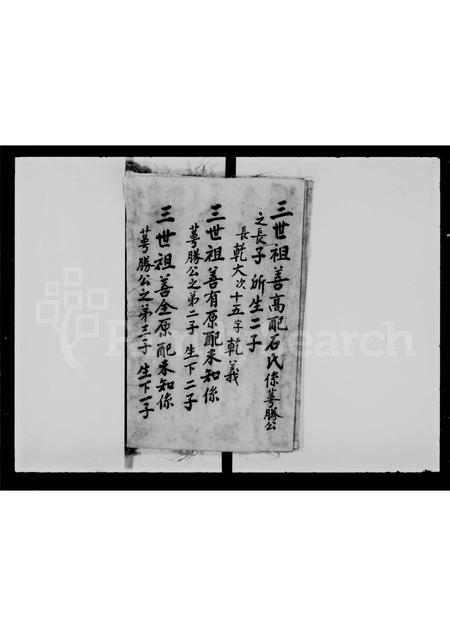 三世祖善高配石氏係萼勝公
之長子所生二子
長乾大次十五字乾義
三世祖善有原配未知係
萼勝公之第二子生下二子
三世祖善全原配未知係
萼勝公之第三子生下一子
FamilySearch